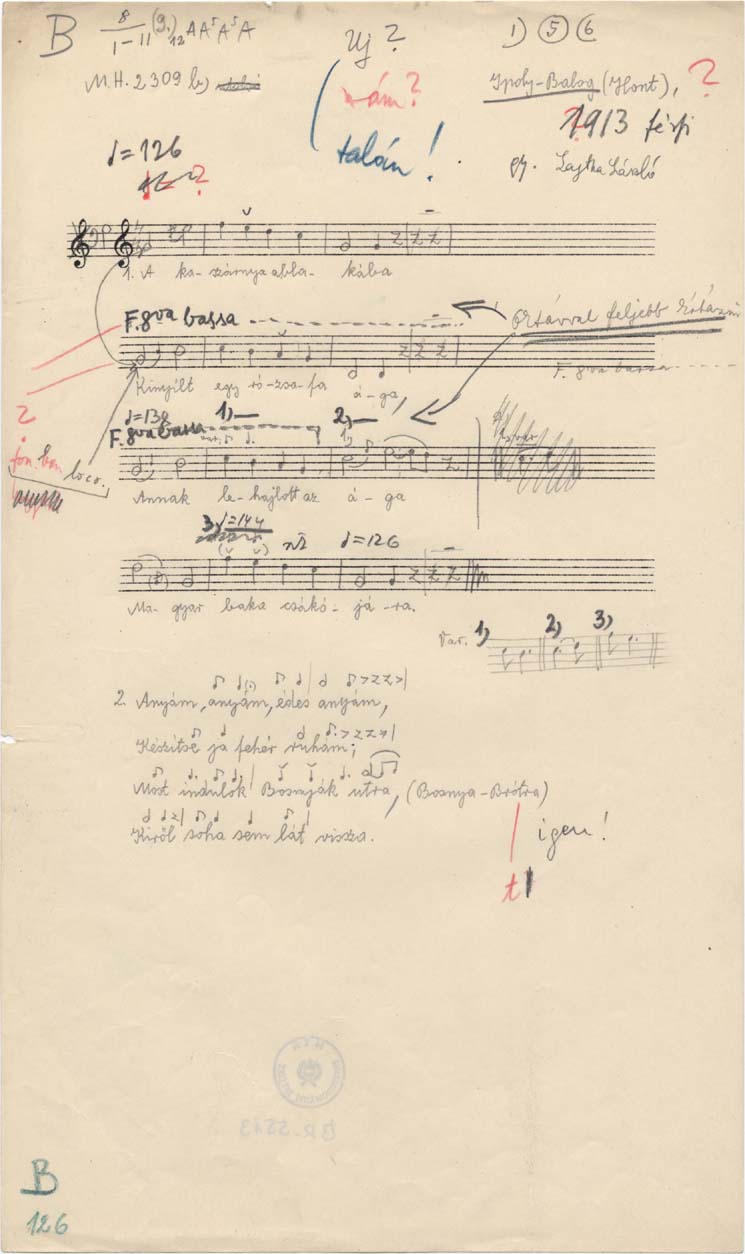 B 8 I-II (9.) 12 A A⁵ A⁵ A
Uj ?
1) 5 6
M.H. 2309 b)
nám?
talán!
Ipoly-Balog (Hont), ?
1913 férfi
gy. Lajtha László
♩=126
?
1. A ka-szárnya abla-kába
F. 8va bassa
Oktávval feljebb
Kinyilt egy ró-zsa-fa á-ga,
F. 8va bassa
♩=138 1) 2)
F. 8va bassa
var.
?
loco.
Annak le-hajlott az á-ga
3) ♩=144
♩=126
Ma-gyar baka csákó-já-ra.
Var. 1) 2) 3)
2. Anyám, anyám, édes anyám,
Készitse ja fehér ruhám;
Most indulok Bosnyják utra, (Bosnya-Brótra)
Kiről soha sem lát vissza.
igen!
t
B
126